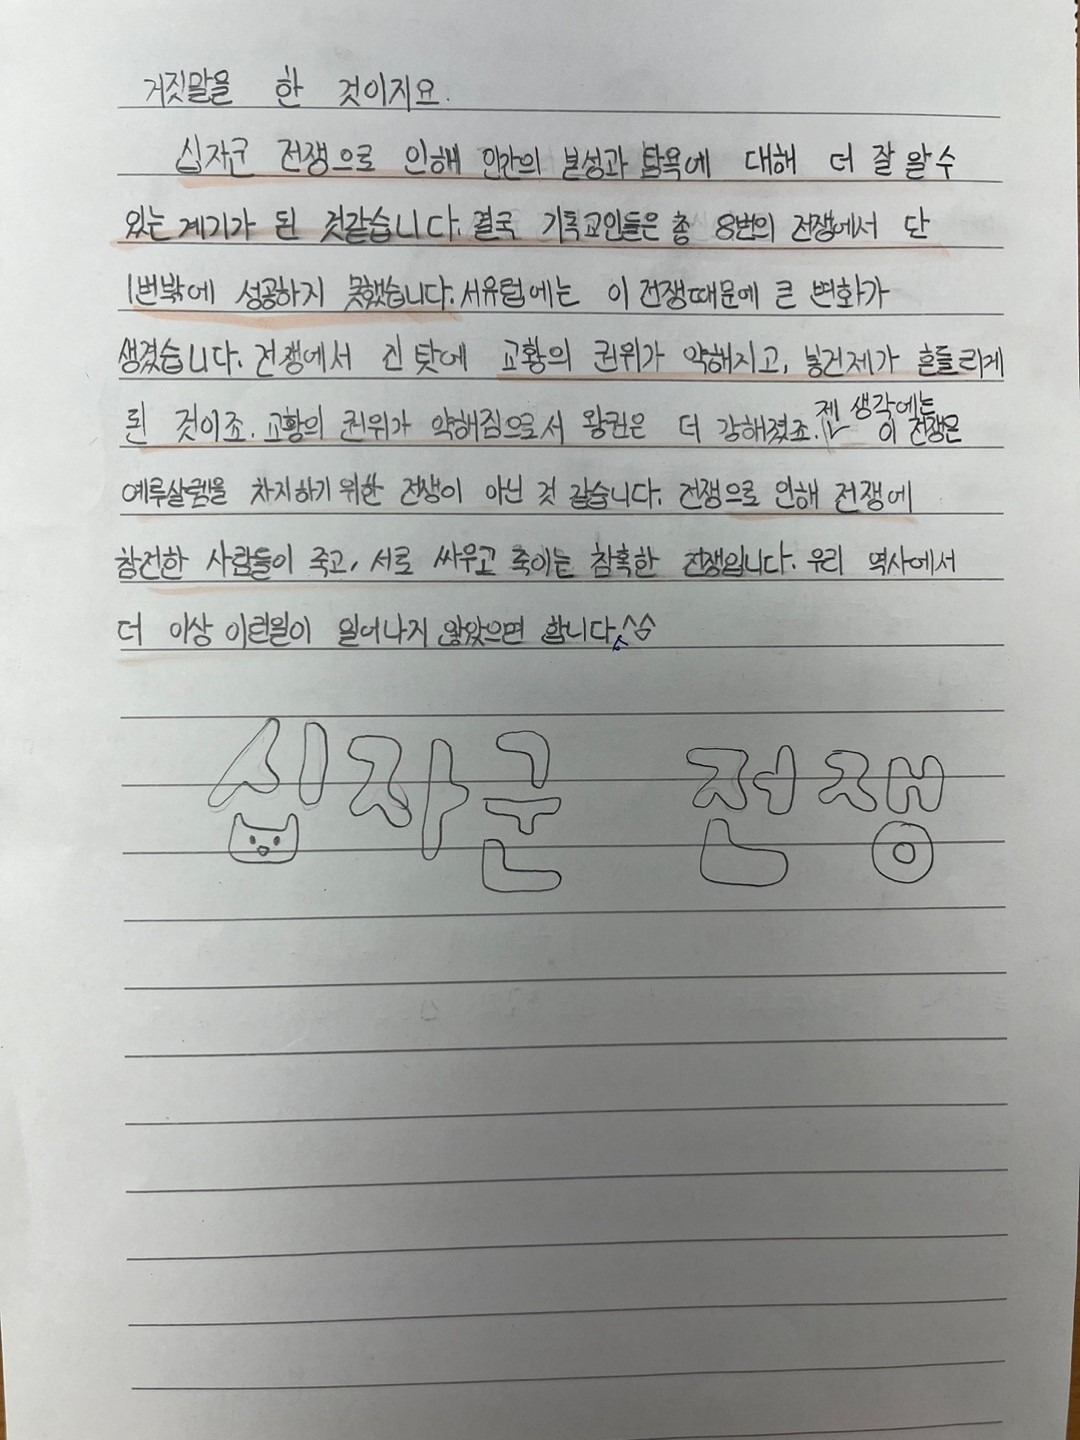 거짓말을 한 것이지요.
십자군 전쟁으로 인해 인간의 본성과 탐욕에 대해 더 잘 알 수
있는 계기가 된 것같습니다. 결국 기독교인들은 총 8번의 전쟁에서 단
1번밖에 성공하지 못했습니다. 서유럽에는 이 전쟁때문에 큰 변화가
생겼습니다. 전쟁에서 진 탓에 교황의 권위가 약해지고, 봉건제가 흔들리게
된 것이죠. 교황의 권위가 약해짐으로서 왕권은 더 강해졌죠. 젠 생각에는 이 전쟁은
예루살렘을 차지하기 위한 전쟁이 아닌 것 같습니다. 전쟁으로 인해 전쟁에
참전한 사람들이 죽고, 서로 싸우고 죽이는 참혹한 전쟁입니다. 우리 역사에서
더 이상 이런일이 일어나지 않았으면 합니다.^^
십자군 전쟁